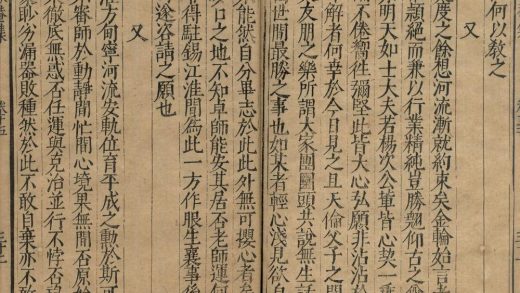 何以教之
度之餘想河流漸就約束矣金輪如
頴絕而兼以行業精純豈勝飄仰古之
明天如士大夫若楊次公輩皆心契一乗
不倦嚮徃彌堅此皆大心弘願非沾沾
解者何幸於今日見之且天倫父子之間
友朋之樂所謂大家團圞頭共說無生話
世間最勝之事也如某者輕心淺見欲自
能然自分畢志於此此外無可攖心者
口之地不知卓師能安其居否老師運河
得駐錫江淮間為此一方作眼生襄事後
遂咨請之願也
又
方甸寧河流安軌位育平成之勳於斯
審師於動靜閒忙間心境果無間否原
徹底無惑否任運與克治並行不悖否
耖夯漏器敗種然於此不敢自棄亦不